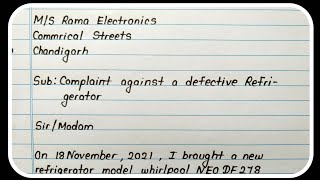 M/S Rama Electronics
Commrical Streets
Chandigarh
Sub: Complaint against a defective Refri-
gerator
Sir/Madam
On 18 November, 2021, I brought a new
refrigerator model whirlpool NEO DF278